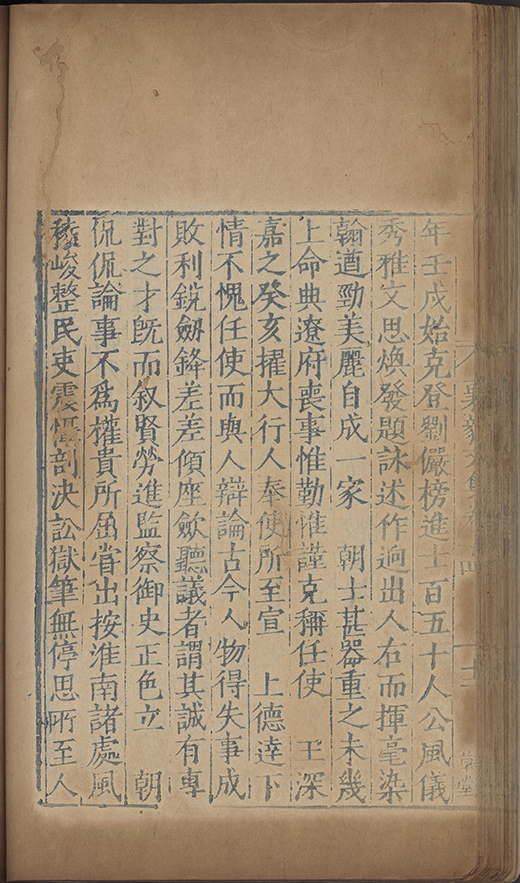 年壬戌始克登劉儼榜進士百五十人公風儀
秀雅文思煥發題詠述作逈出人右而揮毫染
翰遒勁美麗自成一家　朝士甚器重之未幾
上命典遼府喪事惟勤惟謹克稱任使　王深
嘉之癸亥擢大行人奉使所至宣　上德達下
情不愧任使而與人辯論古今人物得失事成
敗利銳劒鋒差差傾座歛聽議者謂其誠有專
對之才旣而叙賢勞進監察御史正色立　朝
侃侃論事不爲權貴所屈甞出按淮南諸處風
稜峻整民吏震懾剖決訟獄筆無停思所至人